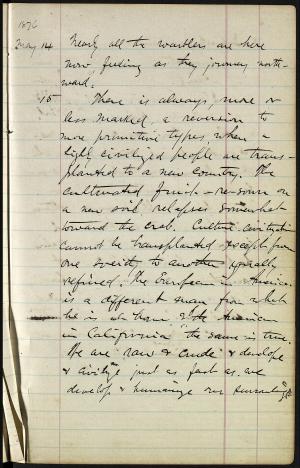 1876
May 14 Nearly all the warblers are here
now feeding as they journey north-
ward.
15 There is always, more or
less marked, a reversion to
more primitive types when a
highly civilized people are trans-
planted to a new country. The
cultivated fruit - re-sown on
a new soil relapses somewhat
toward the crab. Culture, civilization
cannot be transplanted except from
one society to another equally
refined. The European in America
is a different man from what
he is at home & the American
in California the same is true.
We are raw & crude & develope
& civilize just as fast as we
develop & humanize our surroundings